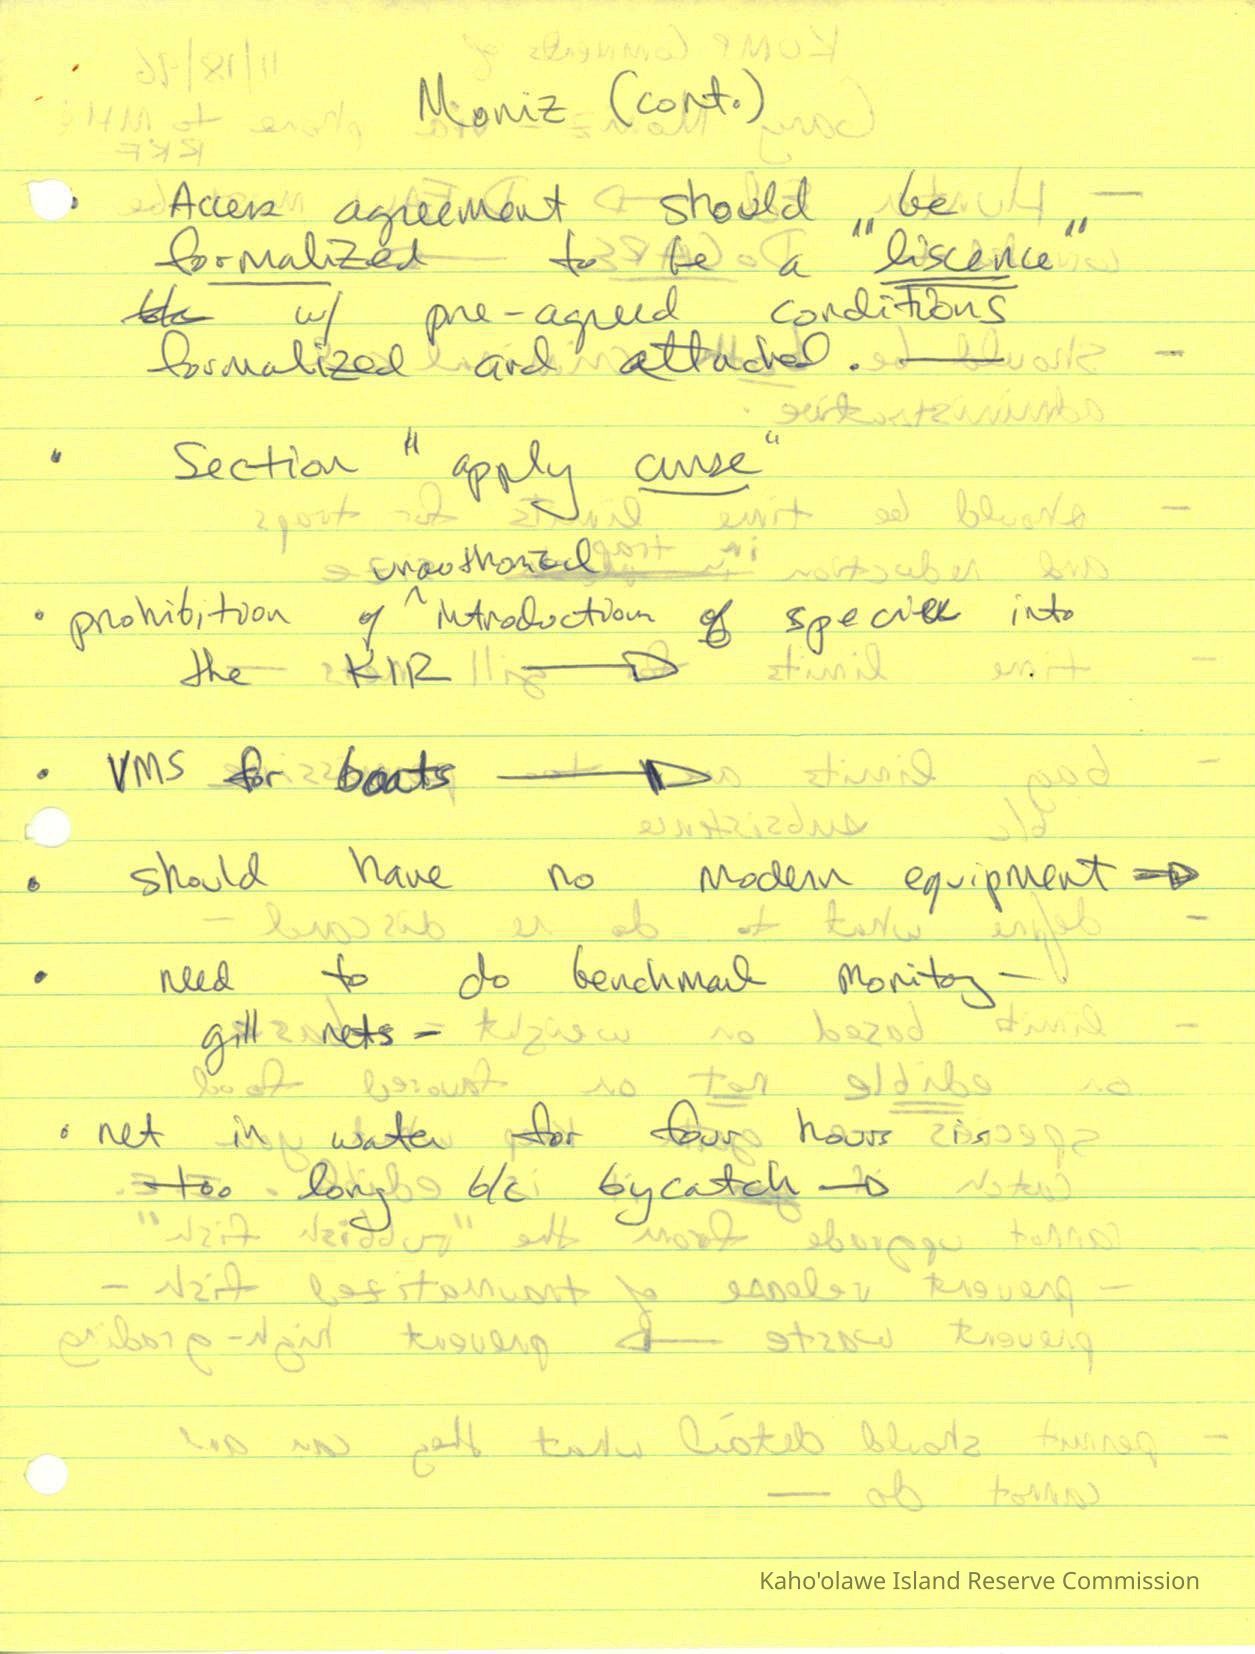 Moniz (cont.)
• Access agreement should be
formalized to be a "liscence"
b/c w/ pre-agreed conditions
formalized and attached.
• Section "apply cause"
unauthorized
• prohibition of ^ introduction of species into
the KIR
• VMS for boats
• should have no modern equipment
• need to do benchmark monitoring —
gill nets -
• net in water for four hours is
too long b/c bycatch
Kaho'olawe Island Reserve Commission